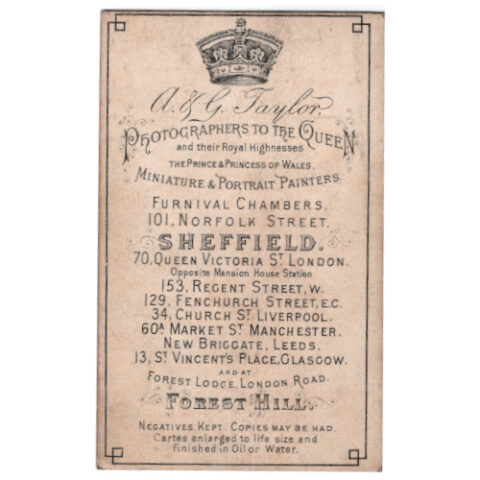 A. & G. Taylor.
PHOTOGRAPHERS TO THE QUEEN
and their Royal Highnesses
THE PRINCE & PRINCESS OF WALES.
MINIATURE & PORTRAIT PAINTERS.
FURNIVAL CHAMBERS,
101, NORFOLK STREET,
SHEFFIELD.
70, QUEEN VICTORIA ST LONDON.
Opposite Mansion House Station
153, REGENT STREET, W.
129, FENCHURCH STREET, E.C.
34, CHURCH ST LIVERPOOL.
60A MARKET ST MANCHESTER.
NEW BRIGGATE, LEEDS.
13, ST VINCENT'S PLACE, GLASGOW.
AND AT
FOREST LODGE, LONDON, ROAD.
FOREST HILL.
NEGATIVES KEPT. COPIES MAY BE HAD.
Cartes enlarged to life size and
finished in Oil or Water.